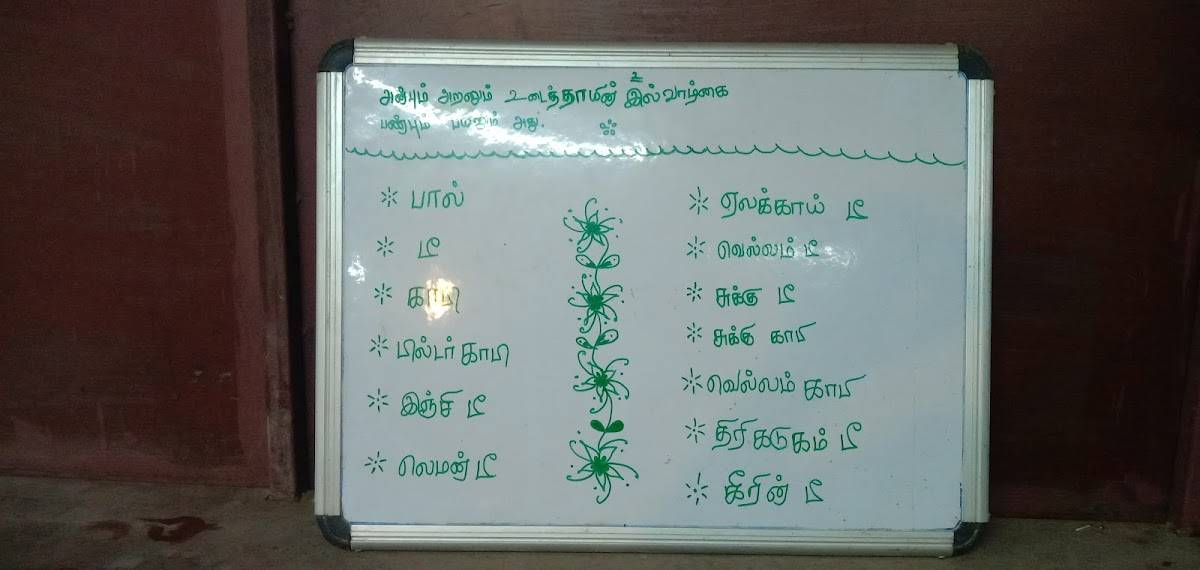 அன்பும் அறனும் உடைத்தாயின் இல்வாழ்கை
பண்பும் பயனும் அது.
பால்
டீ
காபி
பில்டர் காபி
இஞ்சி டீ
லெமன் டீ
ஏலக்காய் டீ
வெல்லம் டீ
சுக்கு டீ
சுக்கு காபி
வெல்லம் காபி
திரிகடுகம் டீ
கீரின் டீ